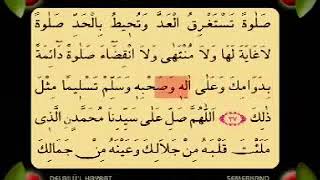 صَلٰوةً تَسْتَغْرِقُ الْعَدَّ وَتُحٖيطُ بِالْحَدِّ صَلٰوةً
لَاغَايَةَ لَهَا وَلَا مُنْتَهٰى وَلَا انْقِضَٓاءَ صَلٰوةً دَٓائِمَةً
بِدَوَامِكَ وَعَلٰٓى اٰلِهٖ وَصَحْبِهٖ وَسَلِّمْ تَسْلٖيمًا مِثْلَ
ذٰلِكَ ﴿٣٧﴾ اَللّٰهُمَّ صَلِّ عَلٰى سَيِّدِنَا مُحَمَّدٍنِ الَّذٖى
مَلَئْتَ قَلْبَهُ مِنْ جَلَالِكَ وَعَيْنَهُ مِنْ جَمَالِكَ
DELAILÜ'L HAYRAT SEMERKAND